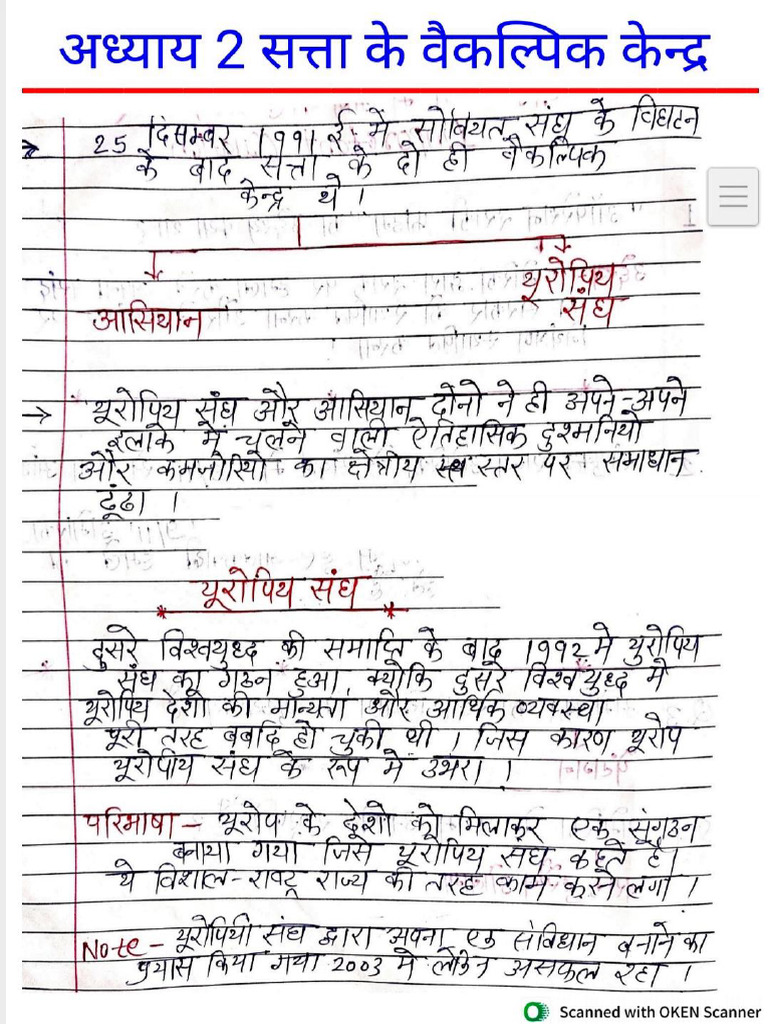 अध्याय 2 सत्ता के वैकल्पिक केन्द्र
25 दिसम्बर 1991 ई में सोवियत संघ के विघटन
के बाद सत्ता के दो ही वैकल्पिक
केन्द्र थे ।
यूरोपिय
संघ
आसियान
→ यूरोपिय संघ और आसियान दोनो ने ही अपने-अपने
इलाके में चलने वाली ऐतिहासिक दुश्मनियो
और कमजोरियो का क्षेत्रीय स्तर पर समाधान
ढूंढा ।
यूरोपिय संघ
दुसरे विश्वयुध्द की समाप्ति के बाद 1992 मे युरोपिय
संघ का गठन हुआ, क्योकि दुसरे विश्वयुध्द मे
यूरोपिय देशो की मान्यता और आर्थिक व्यवस्था
पूरी तरह बर्बाद हो चुकी थी । जिस कारण यूरोप
यूरोपीय संघ के रूप मे उभरा ।
परिभाषा - यूरोप के देशो को मिलाकर एक संगठन
बनाया गया जिसे यूरोपिय संघ कहते है।
ये विशाल-राष्ट्र राज्य की तरह काम करने लगा ।
Note - यूरोपियी संघ द्वारा अपना एक संविधान बनाने का
प्रयास किया गया 2003 मे लेकिन असफल रहा ।
Scanned with OKEN Scanner